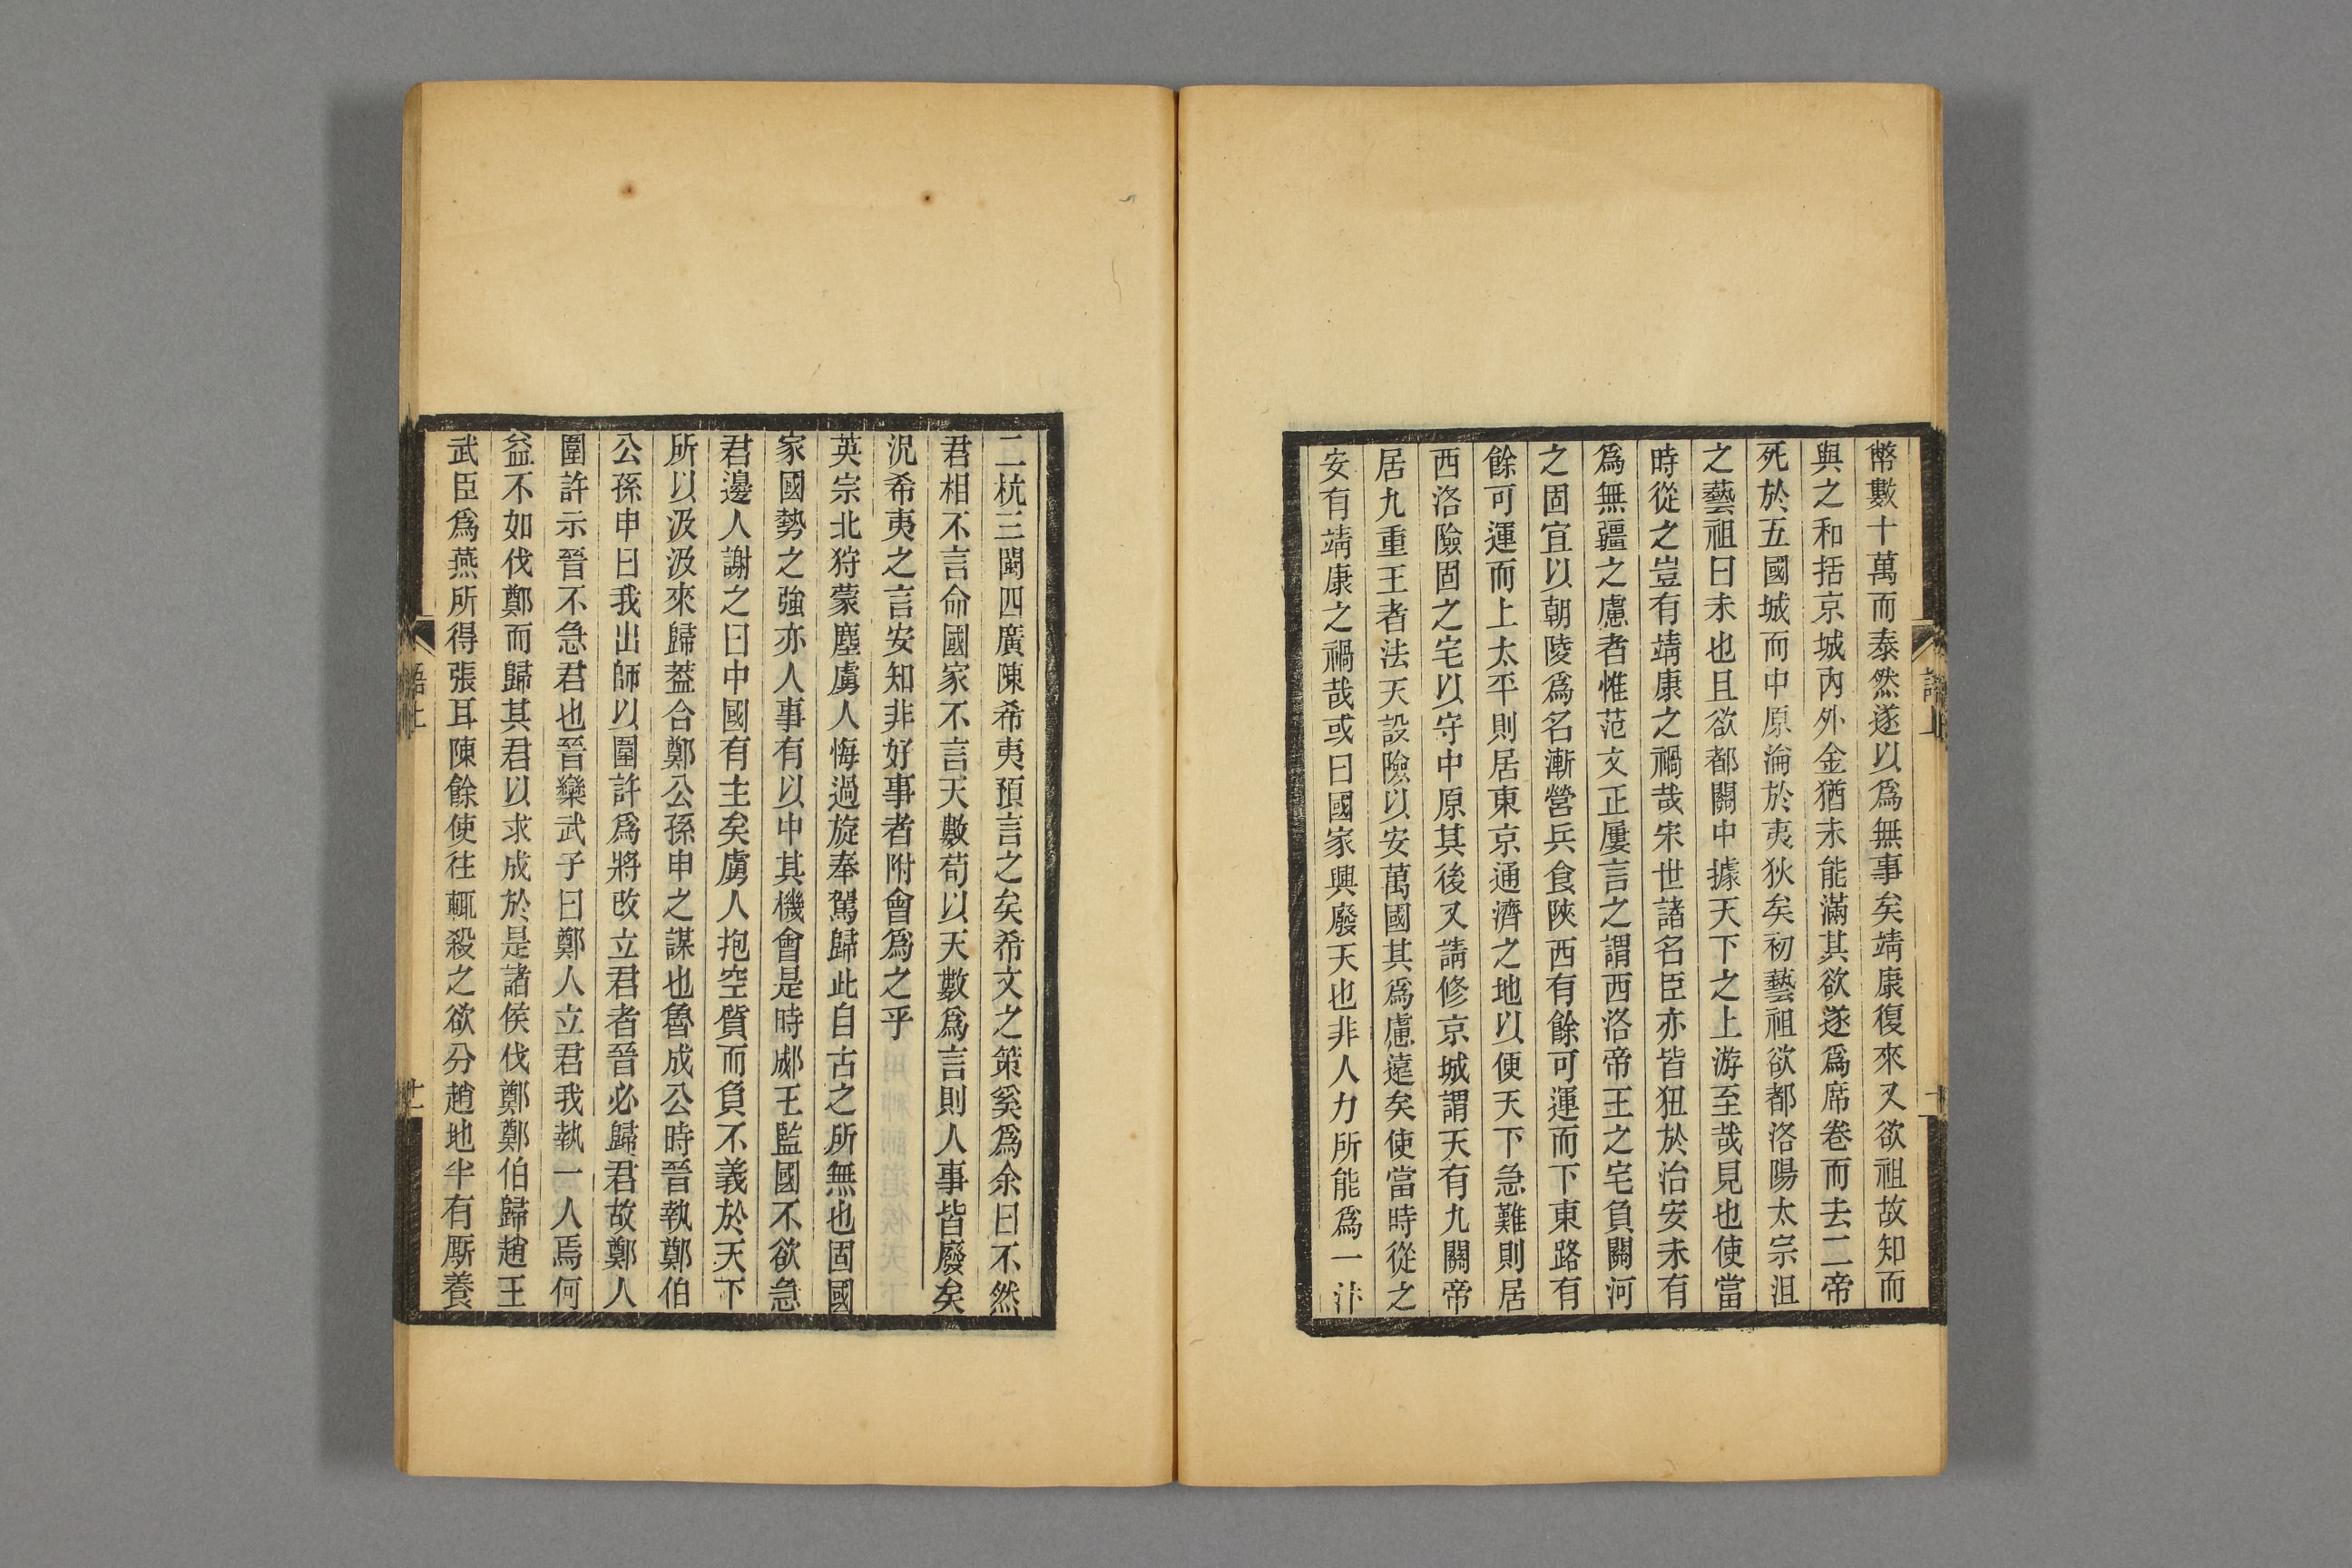 幣數十萬而泰然遂以爲無事矣靖康復來又欲祖故知而
與之和括京城內外金猶未能滿其欲遂爲席卷而去二帝
死於五國城而中原淪於夷狄矣初藝祖欲都洛陽太宗沮
之藝祖曰未也且欲都關中據天下之上游至哉見也使當
時從之豈有靖康之禍哉宋世諸名臣亦皆狃於治安未有
爲無疆之慮者惟范文正屢言之謂西洛帝王之宅負關河
之固宜以朝陵爲名漸營兵食陜西有餘可運而下東路有
餘可運而上太平則居東京通濟之地以便天下急難則居
西洛險固之宅以守中原其後又請修京城謂天有九關帝
居九重王者法天設險以安萬國其爲慮遠矣使當時從之
安有靖康之禍哉或曰國家興廢天也非人力所能爲一汴
語上
二杭三閩四廣陳希夷預言之矣希文之策奚爲余曰不然
君相不言命國家不言天數苟以天數爲言則人事皆廢矣
況希夷之言安知非好事者附會爲之乎
英宗北狩蒙塵虜人悔過旋奉駕歸此自古之所無也固國
家國勢之強亦人事有以中其機會是時郕王監國不欲急
君邊人謝之曰中國有主矣虜人抱空質而負不義於天下
所以汲汲來歸蓋合鄭公孫申之謀也魯成公時晉執鄭伯
公孫申曰我出師以圍許爲將改立君者晉必歸君故鄭人
圍許示晉不急君也晉欒武子曰鄭人立君我執一人焉何
益不如伐鄭而歸其君以求成於是諸侯伐鄭鄭伯歸趙王
武臣爲燕所得張耳陳餘使往輒殺之欲分趙地半有厮養
語上